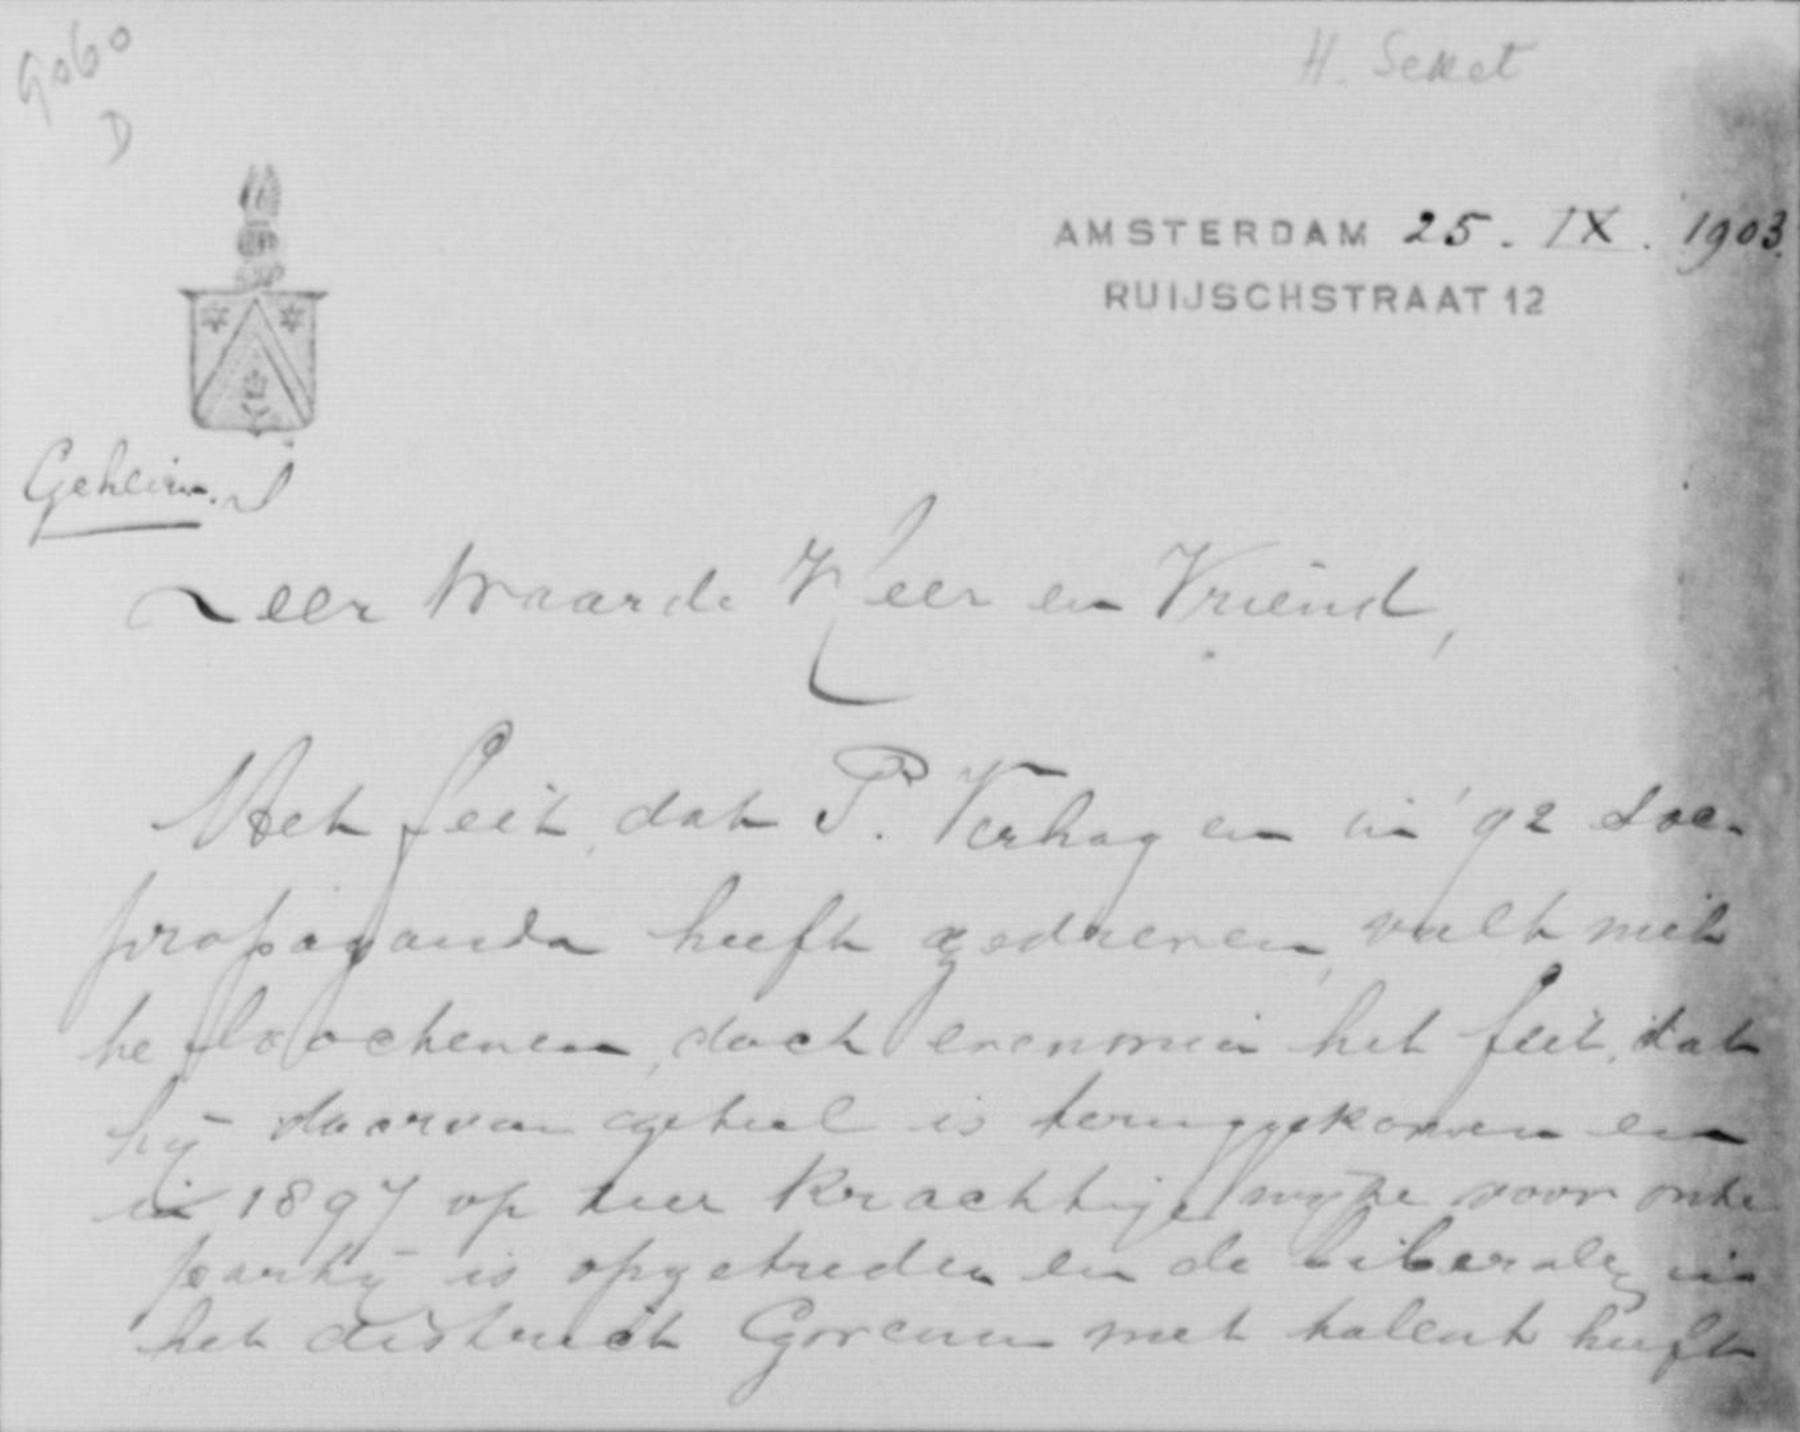 9060
D
H. Seret
AMSTERDAM 25. IX. 1903.
RUIJSCHSTRAAT 12
Geheim.
Zeer Waarde Heer en Vriend,
Het feit, dat P. Verhagen in '92 soc.
propaganda heeft gedreven, valt niet
te loochenen, doch evenmin het feit, dat
hij daarvan geheel is teruggekomen en
in 1897 op zeer krachtige wijze voor onze
partij is opgetreden en de liberalen in
het district Gorcum met talent heeft